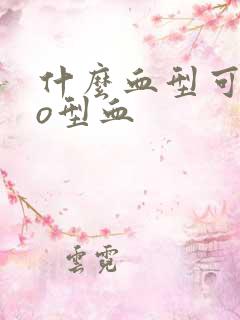 什麼血型可
o型血
雲霓